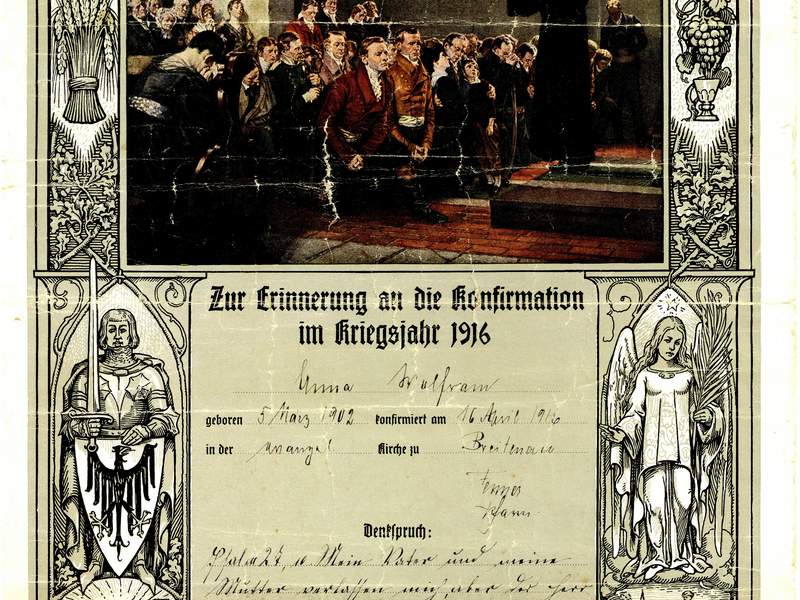 Zur Erinnerung an die Konfirmation
im Kriegsjahr 1916
Anna Wolfram
geboren 5 März 1902 konfirmiert am 16 April 1916
in der evangel Kirche zu Breitenau
Pfarr
Denkspruch:
Psalm 27, 10 Mein Vater und meine
Mutter verlassen mich, aber der Herr